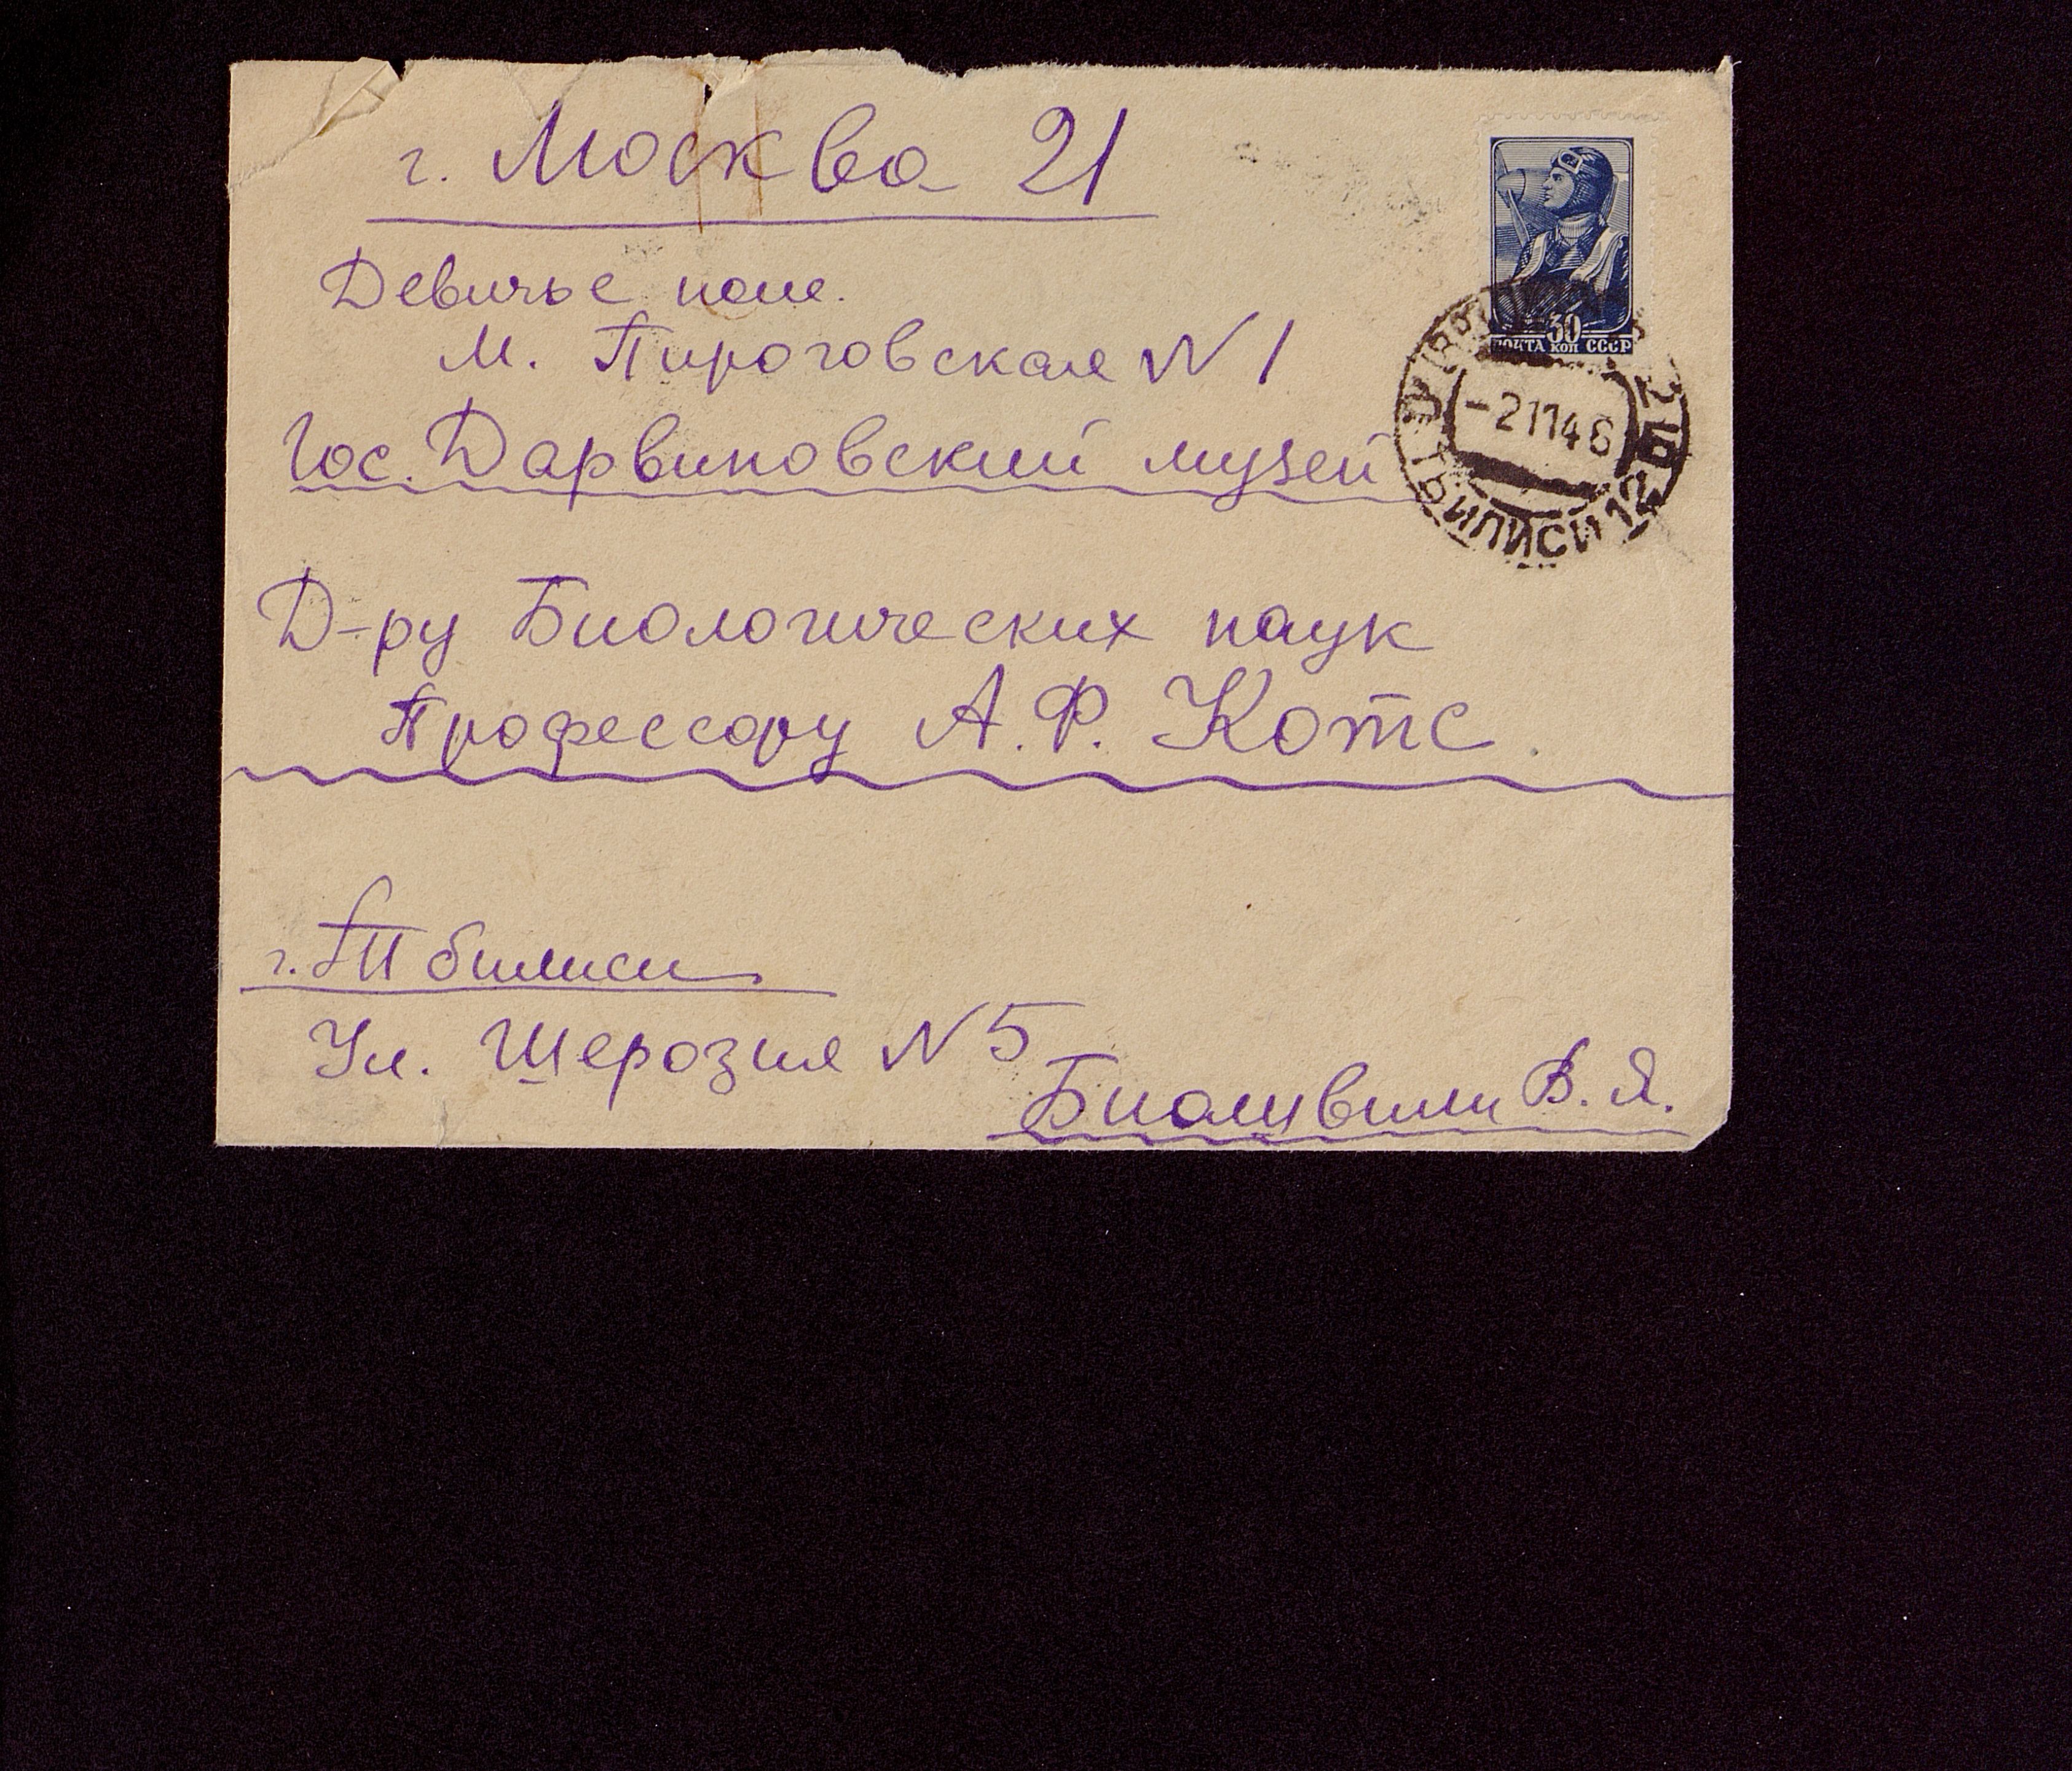 г. Москва 21
Девичье поле.
М. Пироговская N 1
Гос. Дарвиновский музей
Д-ру Биологических наук
Профессору А.Ф. Котс.
30
ПОЧТА КОП СССР
-21146
ТБИЛИСИ 12
г. Тбилиси
Ул. Шерозия N 5
В. Я.